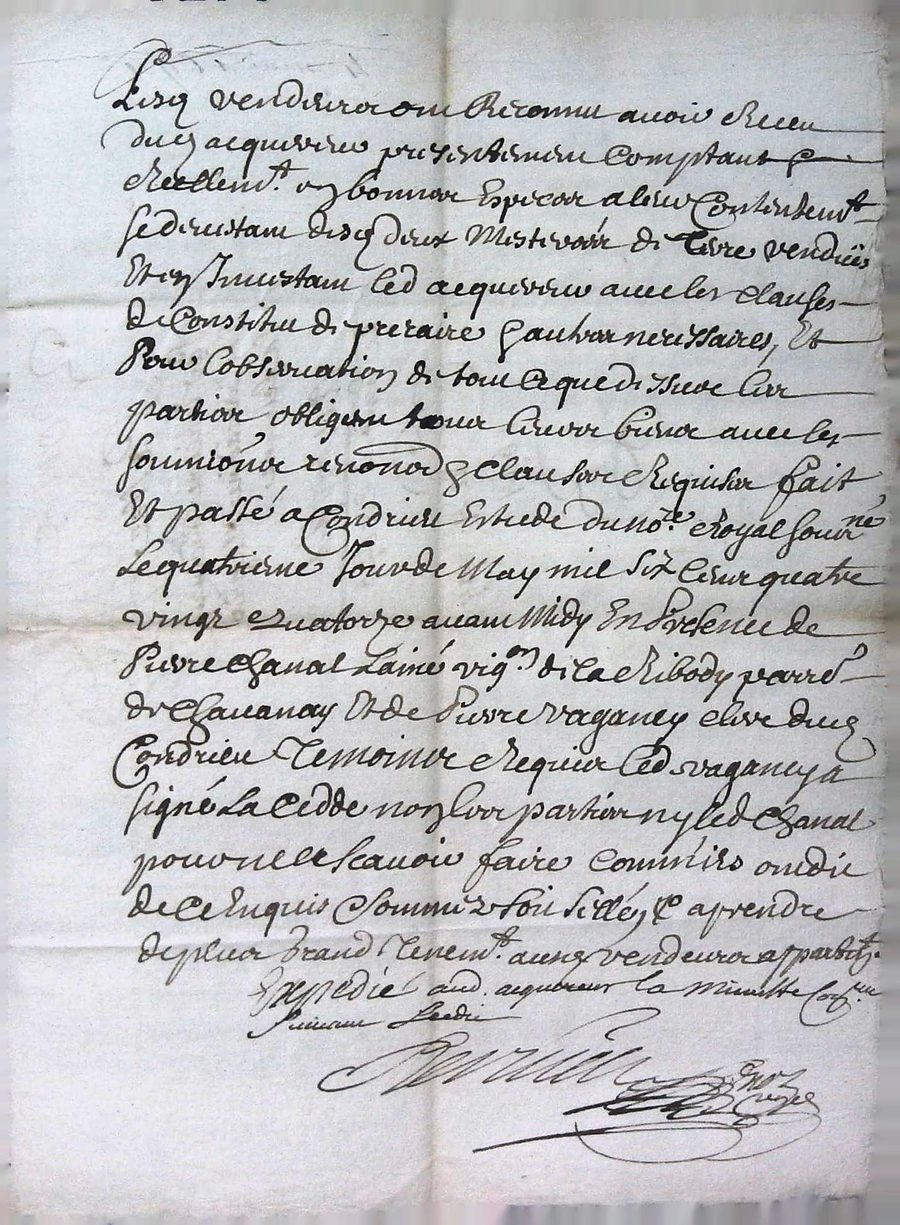 Lesd vendeurs ont Reconnu avoir Receu
dud acquereur presentement Comptant &
Reellem.t en bonnes Especes a leur Contentem.t
se devestant desd deux Mesterées de Terre vendues
Et en Jnvestant led acquereur avec les clauses
de Constitu de precaire & autres necessaires, Et
Pour Lobservation de tout ceque dessus les
parties obligent tous leurs biens avec les
soumions renona.ons & clauses Requises fait
Et passé a Condrieu Estude du no.re Royal soub.né
Le quatrieme Jour de May mil six Cent quatre
vingt quatorze avant Midy En Presence de
Pierre Chanal Lainé vig.on de la Ribody parro.
de Chavanay Et de Pierre vaganey clerc dud
Condrieu Temoins Requis led vaganey a
signé La Cedde non les parties ny led Chanal
pour ne le scavoir faire comm'ils ont dit
de ce Enquis & sommez soit sellé, & a prendre
de plus Grand Tenem.t ausd vendeurs appart.
Expedié aud. acquereur la Minutte
suivant Leedit